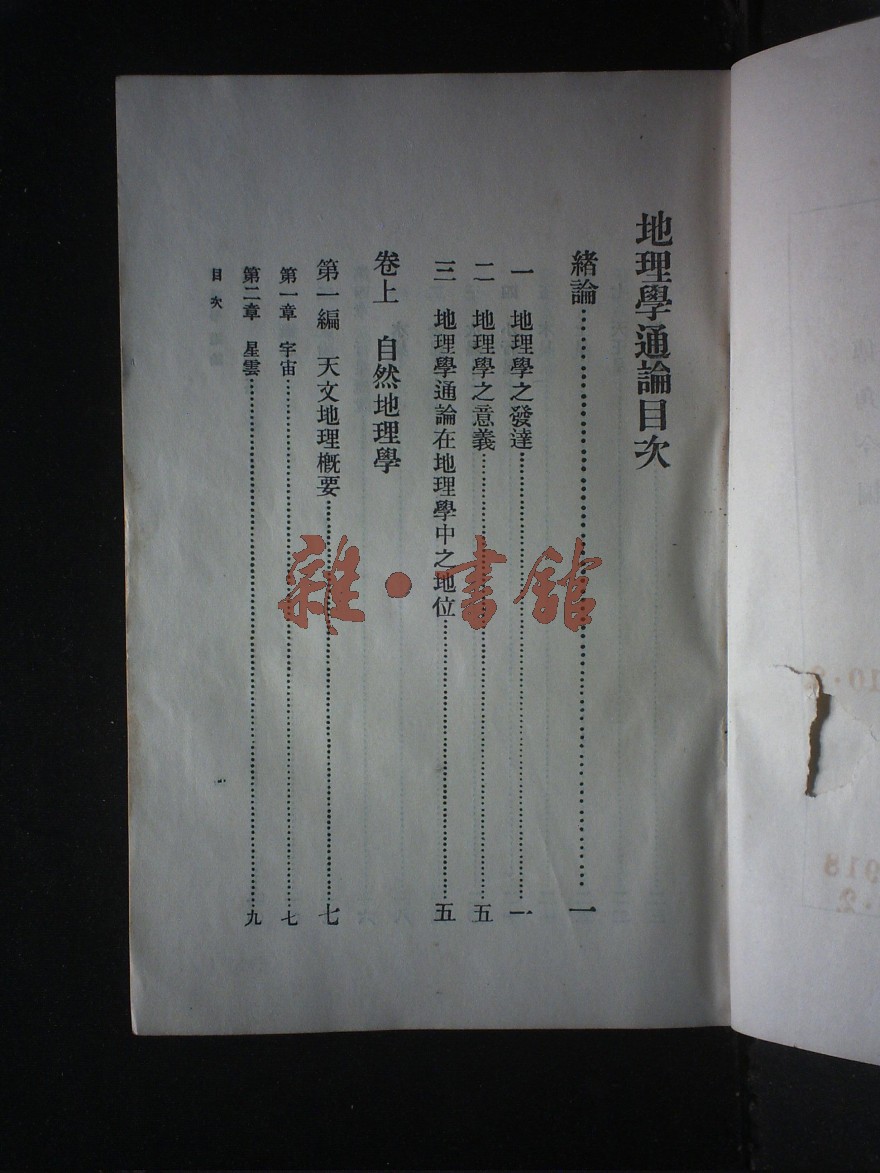 地理學通論目次
緒論……一
一 地理學之發達……一
二 地理學之意義……五
三 地理學通論在地理學中之地位……五
卷上 自然地理學
第一編 天文地理概要……七
第一章 宇宙……七
第二章 星雲……九
目次
一
雜·書館